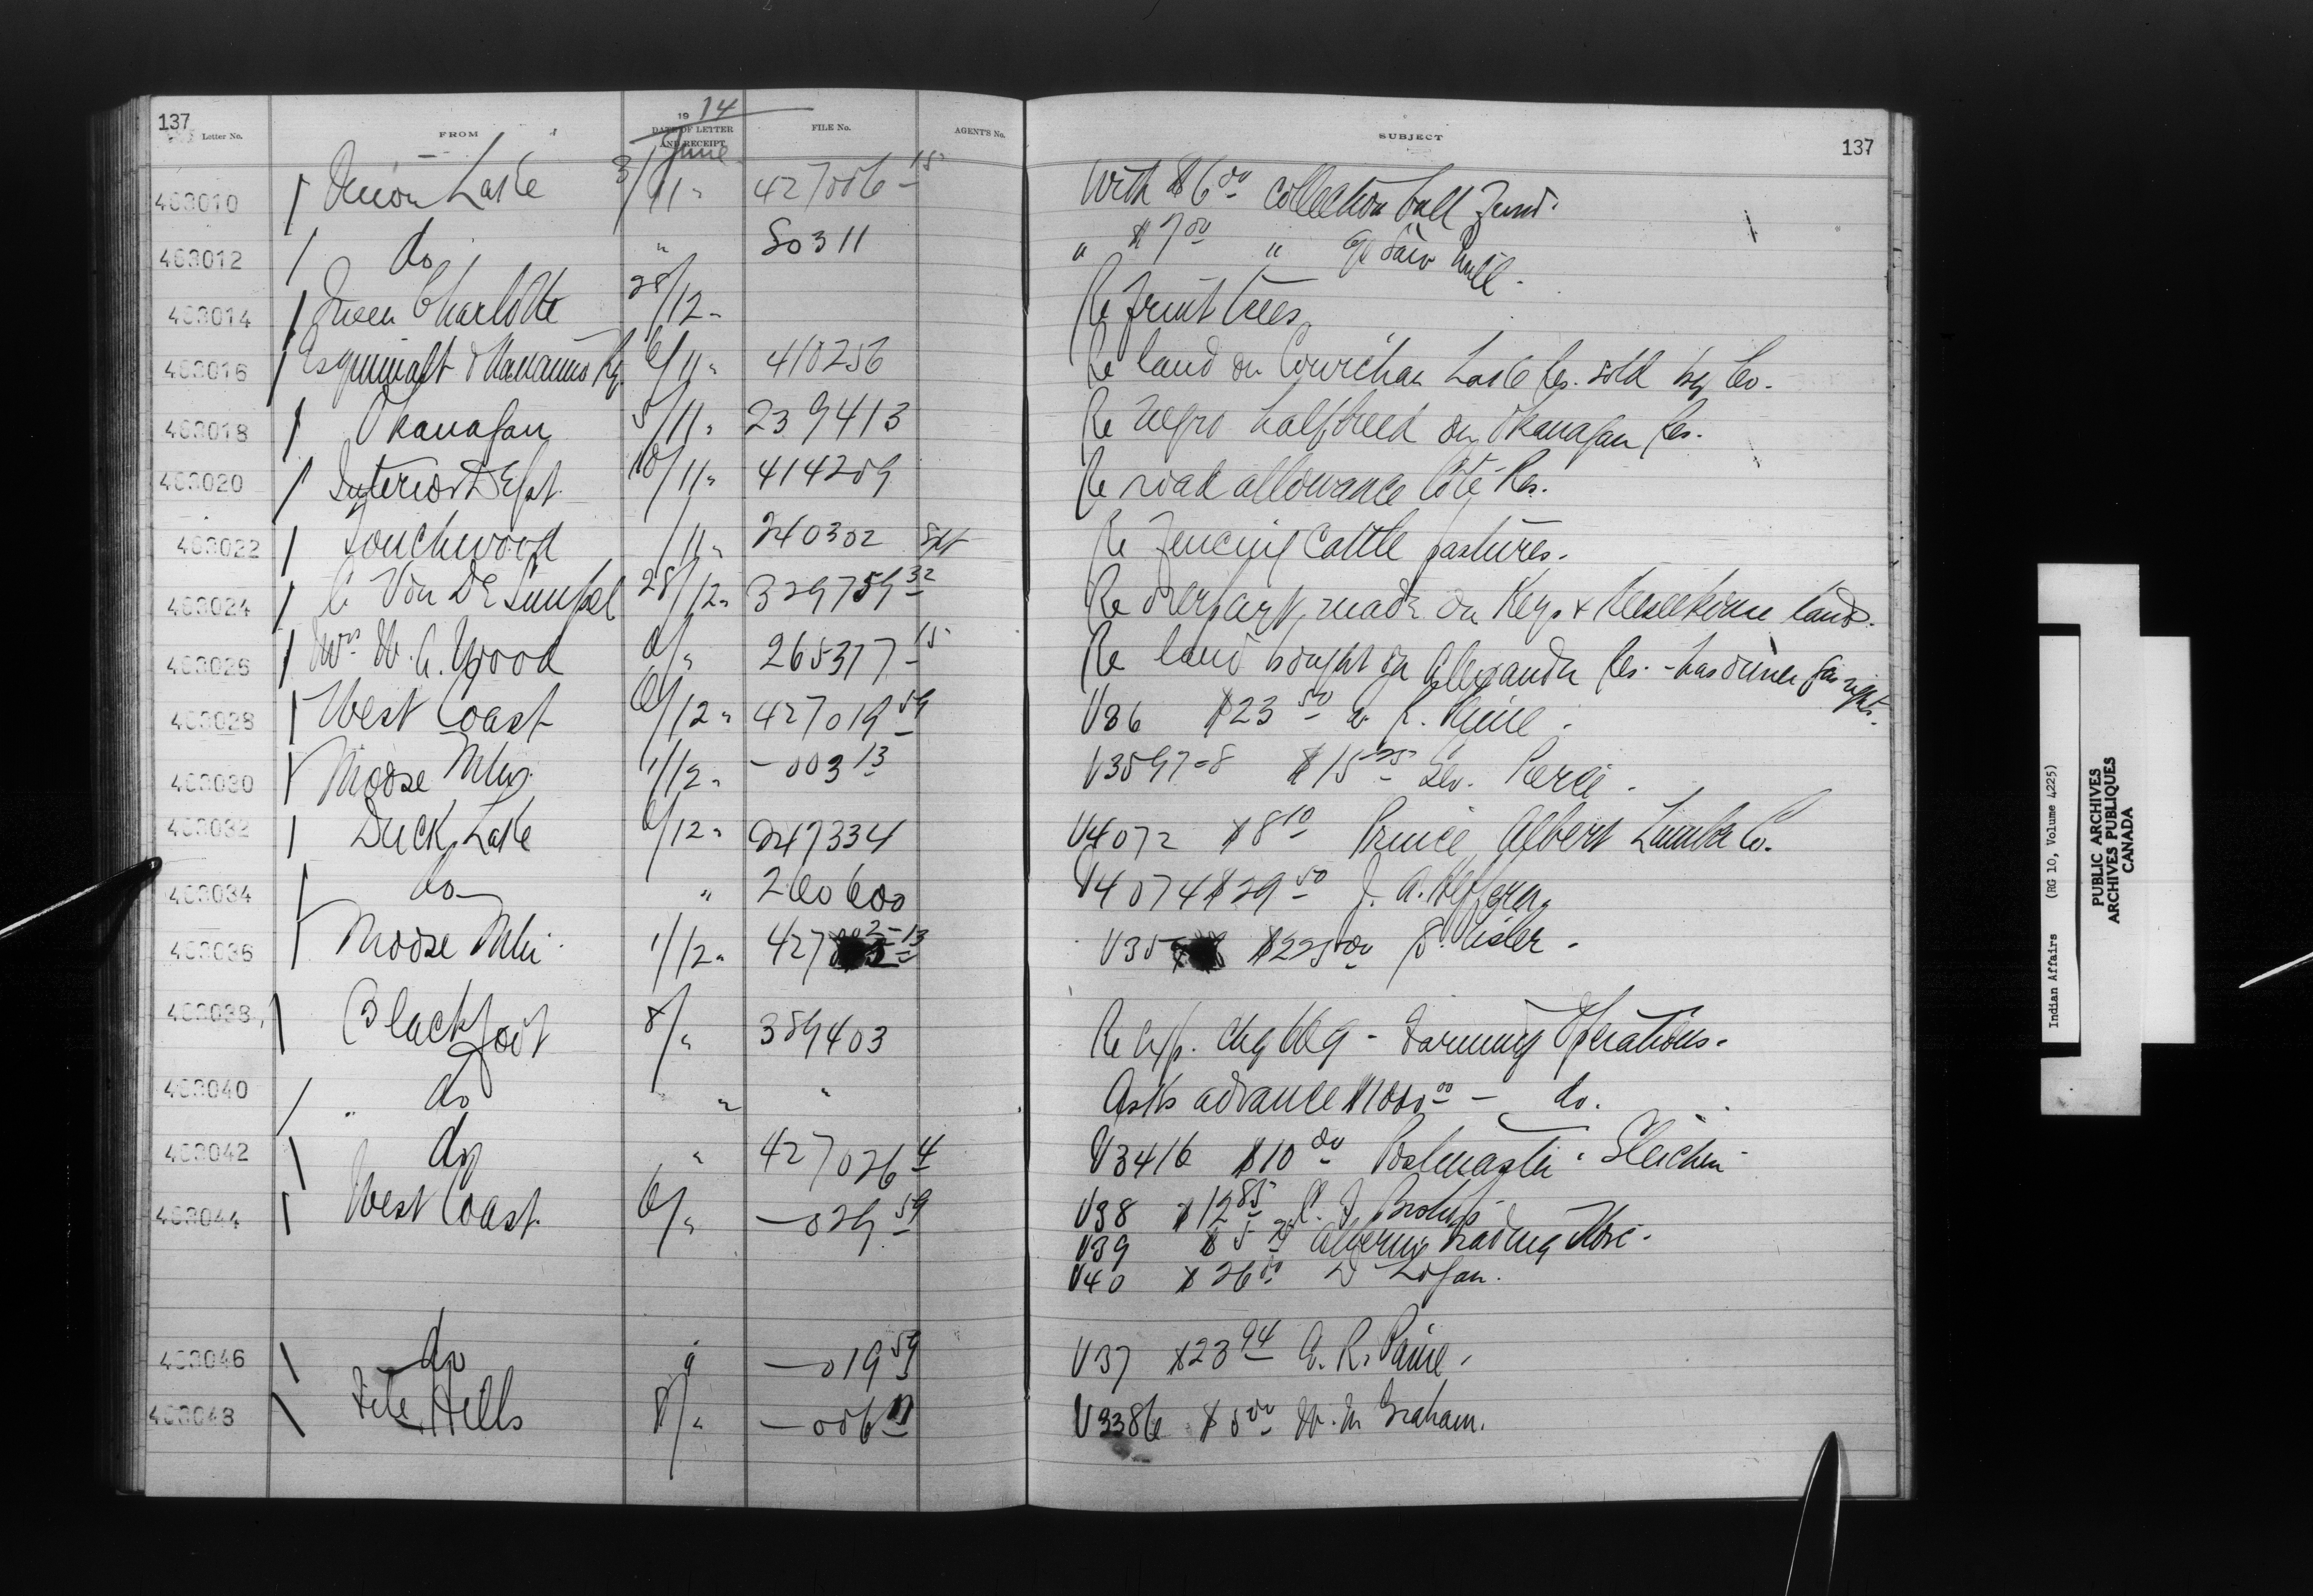 137
1914
Letter No. FROM DATE OF LETTER AND RECEIPT FILE No. AGENT'S No. SUBJECT 137
June
463010 Onion Lake 3/11 " 427006-15 With $6.00 collection bull fund.
463012 do " 80311 " $7.00 " Saw Mill.
463014 Queen Charlotte 28/12 " Re fruit trees
463016 Esquimalt & Nanaimo Ry. 6/11 " 410256 Re land on Cowichan Lake Res. sold by Co.
463018 Okanagan 5/11 " 239413 Re negro halfbreed on Okanagan Res.
463020 Interior Dept. 10/11 " 414209 Re road allowance Cote Res.
463022 Touchwood /11 " 240302 Re Fencing Cattle pastures.
463024 C. Von De 28/12 " 329759 32 Re made on Keys & Keeseekouse lands.
463026 W. A. Wood 265377-15 Re land bought on Alexander Res. - has owner gas rights.
463028 West Coast 6/12 " 427019 59 V36 $23.50 R.
463030 Moose Mtn. 1/12 " -003 13 V3597-8 $15.25 Geo. Pierce.
463032 Duck Lake 6/12 " 247334 V4072 $8.10 Prince Albert Lumber Co.
463034 do " 260600 V4074 $29.50 J. A.
463036 Moose Mtn. 1/12 " 427 13 V35 $225.00
463038 Blackfoot 8/ " 389403 Re - Farming Operations.
463040 " do " " Asks advance $1000.00 - do.
463042 do " 427026 4 V3416 $10.00 Postmaster. Gleichen
463044 West Coast. 6/ " -029 59 V38 $12.85
V39 $5 Alberni Trading Store.
V40 $26.00 D Logan.
463046 do " -019 59 V37 $23.94 A. R. Paine.
463048 File Hills 8/ " -006 V3386 $ W. M. Graham.
Indian Affairs (RG 10, Volume 4225)
PUBLIC ARCHIVES
ARCHIVES PUBLIQUES
CANADA